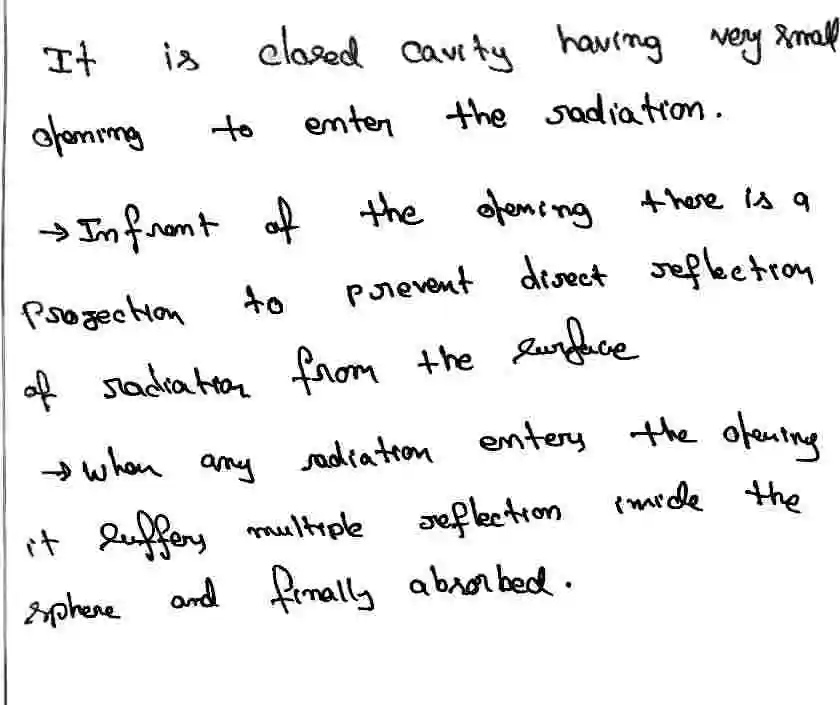 It is closed cavity having very small
opening to enter the radiation.
→ Infront of the opening there is a
projection to prevent direct reflection
of radiation from the surface
→ When any radiation enters the opening
it suffers multiple reflection inside the
sphere and finally absorbed.